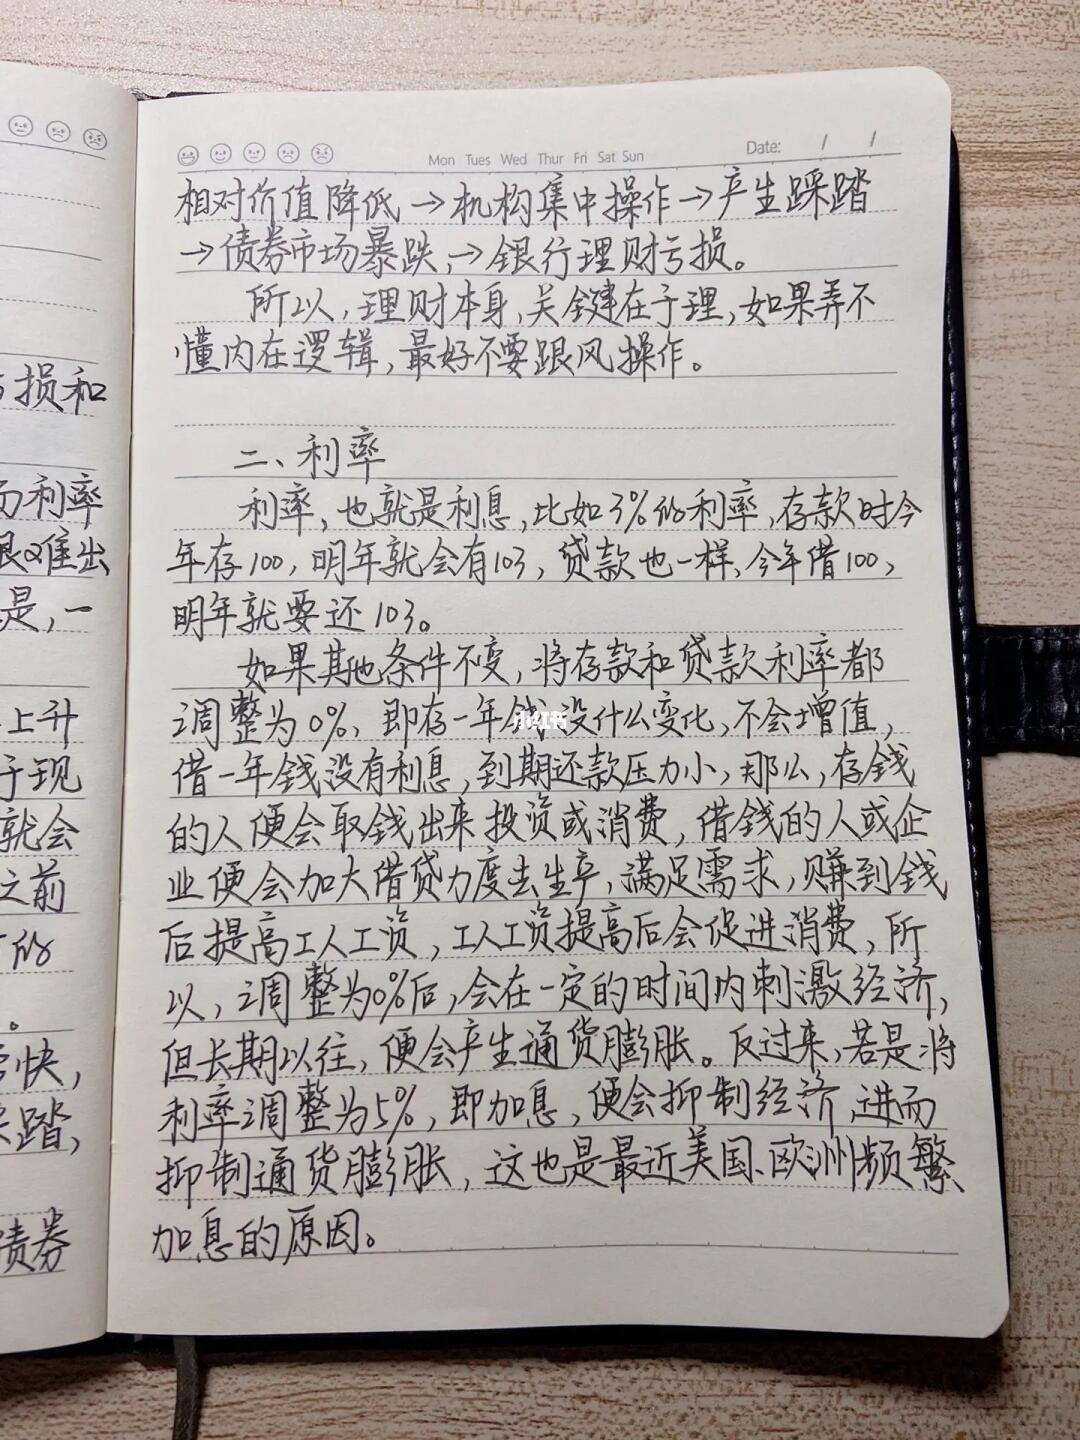 损和
利率
难出
是，一
上升
于现
就会
之前
。
快，
踏，
债券
Mon Tues Wed Thur Fri Sat Sun
Date: / /
相对价值降低→机构集中操作→产生踩踏
→债券市场暴跌，→银行理财亏损。
所以，理财本身，关键在于理，如果弄不
懂内在逻辑，最好不要跟风操作。
二、利率
利率，也就是利息，比如3%的利率，存款时今
年存100，明年就会有103，贷款也一样、今年借100，
明年就要还103。
如果其他条件不变，将存款和贷款利率都
调整为0%，即存一年钱没什么变化，不会增值，
借一年钱没有利息，到期还款压力小，那么，存钱
的人便会取钱出来投资或消费，借钱的人或企
业便会加大借贷力度去生产，满足需求，赚到钱
后提高工人工资，工人工资提高后会促进消费，所
以，调整为0%后，会在一定的时间内刺激经济，
但长期以往，便会产生通货膨胀。反过来，若是将
利率调整为5%，即加息，便会抑制经济，进而
抑制通货膨胀，这也是最近美国、欧洲频繁
加息的原因。
小红书